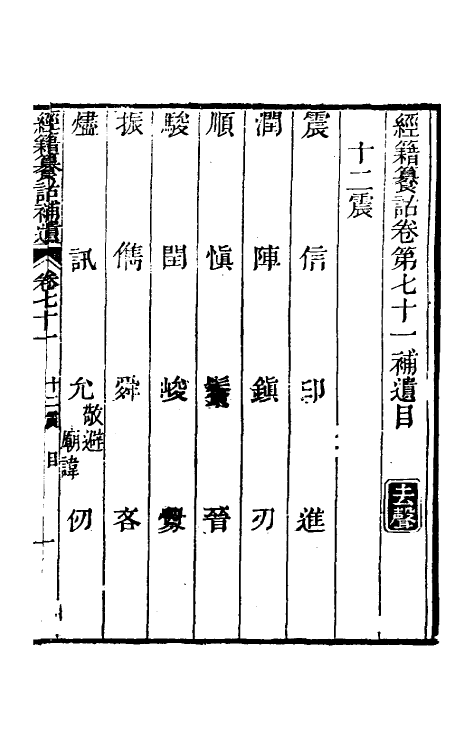 經籍籑詁卷第七十一補遺目
去聲
十二震
震 信 印 進
潤 陣 鎮 刃
順 愼 鬢 晉
駿 閏 峻 釁
振 儁 舜 吝
燼 訊 允敬避廟諱 仞
經籍籑詁補遺 卷七十一 十二震 目 一